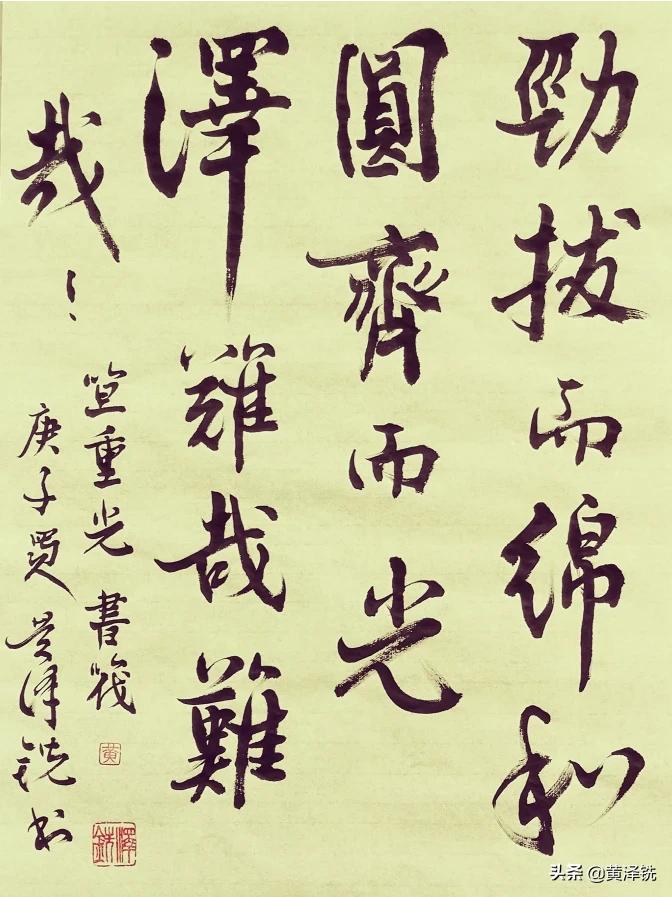 勁拔而綿和
圓齊而光
澤難哉難
哉！
笪重光書筏
庚子夏黄泽铣书
黄
澤銑
头条 @黄泽铣